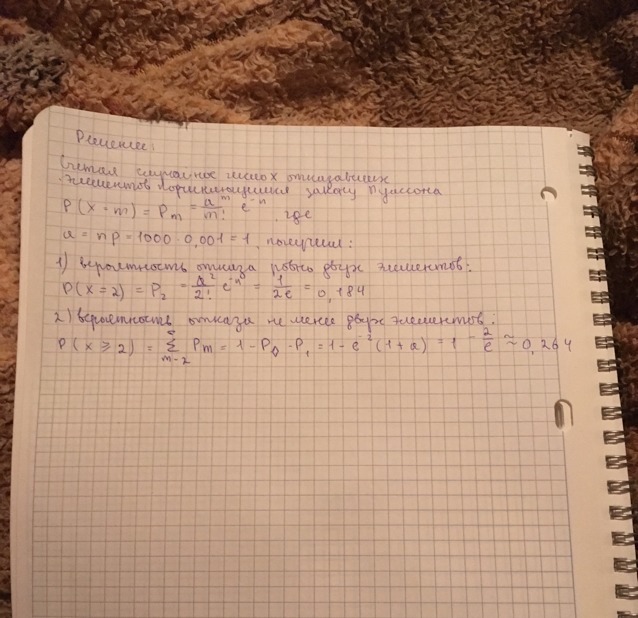 Решение:
Считая случайное число x отказавших
элементов подчиняющимся закону Пуассона
P(x=m) = Pm = a^m/m! e^-n, где
a = np = 1000 · 0,001 = 1, получим:
1) вероятность отказа ровно двух элементов:
P(x=2) = P2 = a^2/2! e^-n = 1/2e = 0,184
2) вероятность отказа не менее двух элементов:
P(x ≥ 2) = Σ m-2 Pm = 1 - P0 - P1 = 1 - e^-2 (1+a) = 1 - 2/e ≈ 0,264